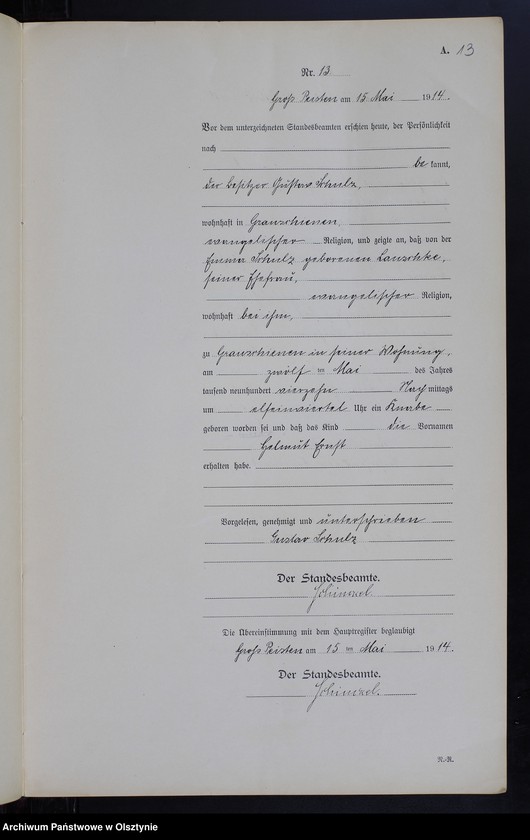 A. 13
Nr. 13
Groß Peisten am 15 Mai 1914.
Vor dem unterzeichneten Standesbeamten erschien heute, der Persönlichkeit
nach
be kannt,
der Besitzer Gustav Schulz,
wohnhaft in
evangelischer Religion, und zeigte an, daß von der
Emma Schulz geborenen
seiner Ehefrau,
evangelischer Religion,
wohnhaft bei ihm,
zu in seiner Wohnung,
am zwölf ten Mai des Jahres
tausend neunhundert vierzehn Nach mittags
um elfeinviertel Uhr ein Knabe
geboren worden sei und daß das Kind die Vornamen
Helmut Ernst
erhalten habe.
Vorgelesen, genehmigt und unterschrieben
Gustav Schulz
Der Standesbeamte.
Die Übereinstimmung mit dem Hauptregister beglaubigt
Groß Peisten am 15 ten Mai 1914.
Der Standesbeamte.
Archiwum Państwowe w Olsztynie